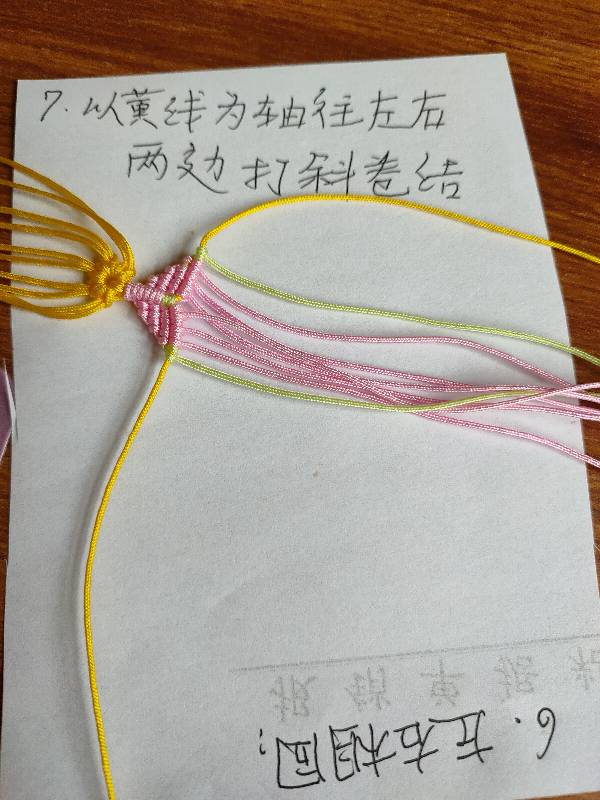 7.以黄线为轴往左右
两边打斜卷结
6.左右相同;